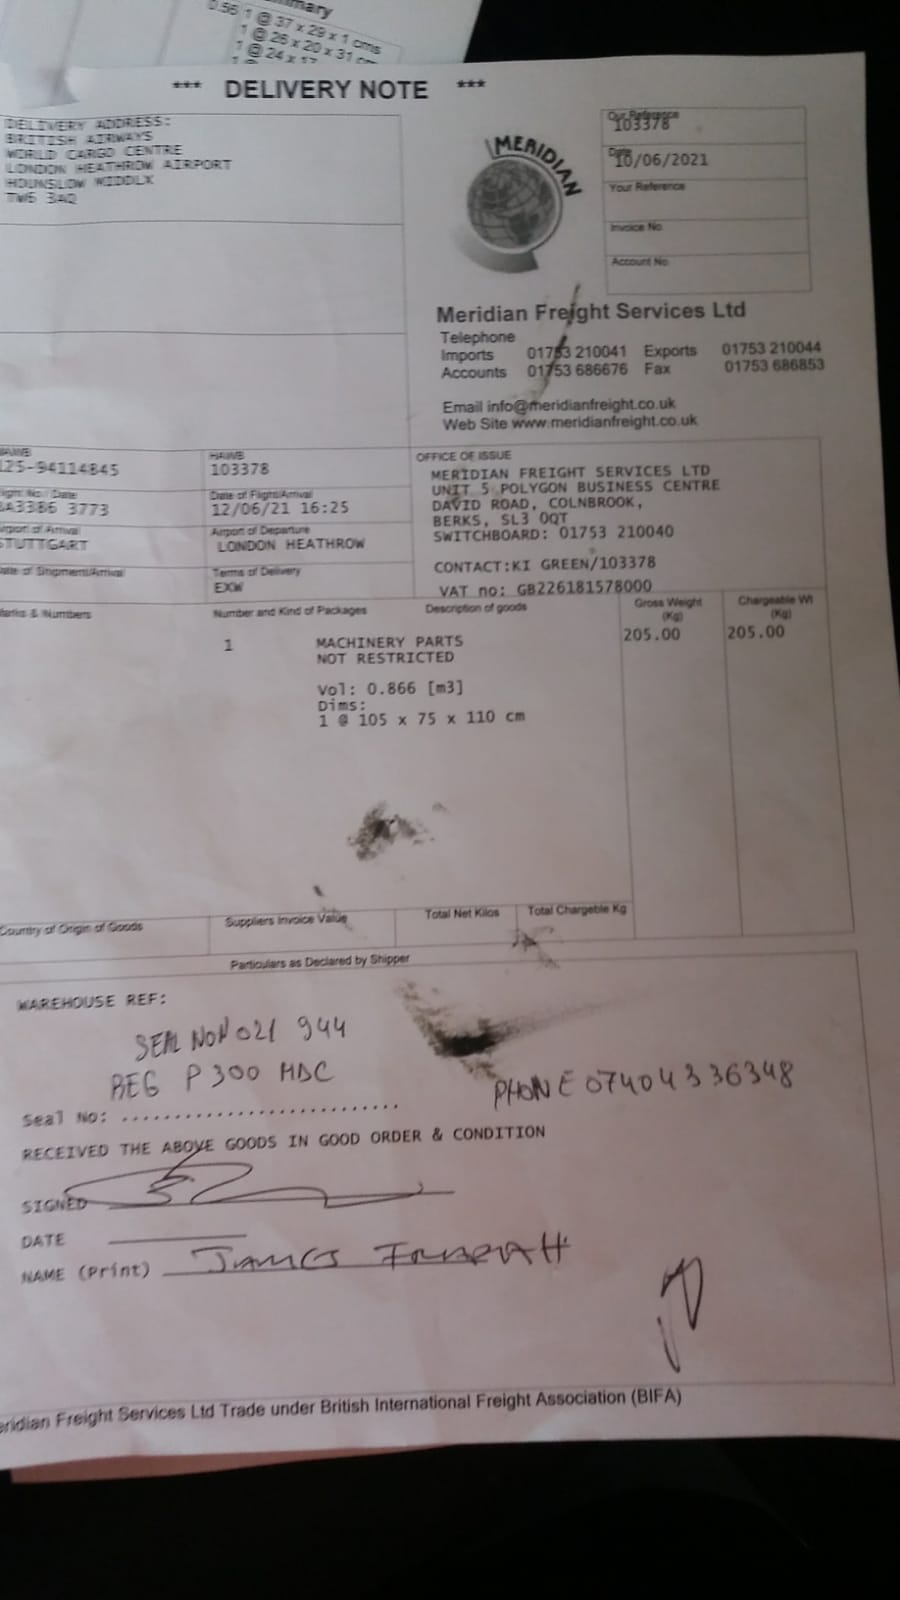 mmary
0.56 1 @ 37 x 29 x 1 cms
1 @ 26 x 20 x 31
1 @ 24 x
*** DELIVERY NOTE ***
DELIVERY ADDRESS:
BRITISH AIRWAYS
WORLD CARGO CENTRE
LONDON HEATHROW AIRPORT
HOUNSLOW MIDDLX
TW6 3AQ
MERIDIAN
Our Reference
103378
Date
10/06/2021
Your Reference
Invoice No
Account No
Meridian Freight Services Ltd
Telephone
Imports 01753 210041 Exports 01753 210044
Accounts 01753 686676 Fax 01753 686853
Email info@meridianfreight.co.uk
Web Site www.meridianfreight.co.uk
MAWB
125-94114845
HAWB
103378
light No / Date
BA3386 3773
Date of Flight/Arrival
12/06/21 16:25
irport of Arrival
STUTTGART
Airport of Departure
LONDON HEATHROW
ate of Shipment/Arrival
Terms of Delivery
EXW
OFFICE OF ISSUE
MERIDIAN FREIGHT SERVICES LTD
UNIT 5 POLYGON BUSINESS CENTRE
DAVID ROAD, COLNBROOK,
BERKS, SL3 0QT
SWITCHBOARD: 01753 210040
CONTACT:KI GREEN/103378
VAT no: GB226181578000
arks & Numbers
Number and Kind of Packages
Description of goods
Gross Weight
(Kg)
Chargeable Wt
(Kg)
1 MACHINERY PARTS 205.00 205.00
NOT RESTRICTED
Vol: 0.866 [m3]
Dims:
1 @ 105 x 75 x 110 cm
Country of Origin of Goods
Suppliers Invoice Value
Total Net Kilos
Total Chargeble Kg
Particulars as Declared by Shipper
WAREHOUSE REF:
SEAL NO 021 944
REG P300 MDC
PHONE 07404336348
Seal No: ............................
RECEIVED THE ABOVE GOODS IN GOOD ORDER & CONDITION
SIGNED
DATE
NAME (Print) JAMES
eridian Freight Services Ltd Trade under British International Freight Association (BIFA)